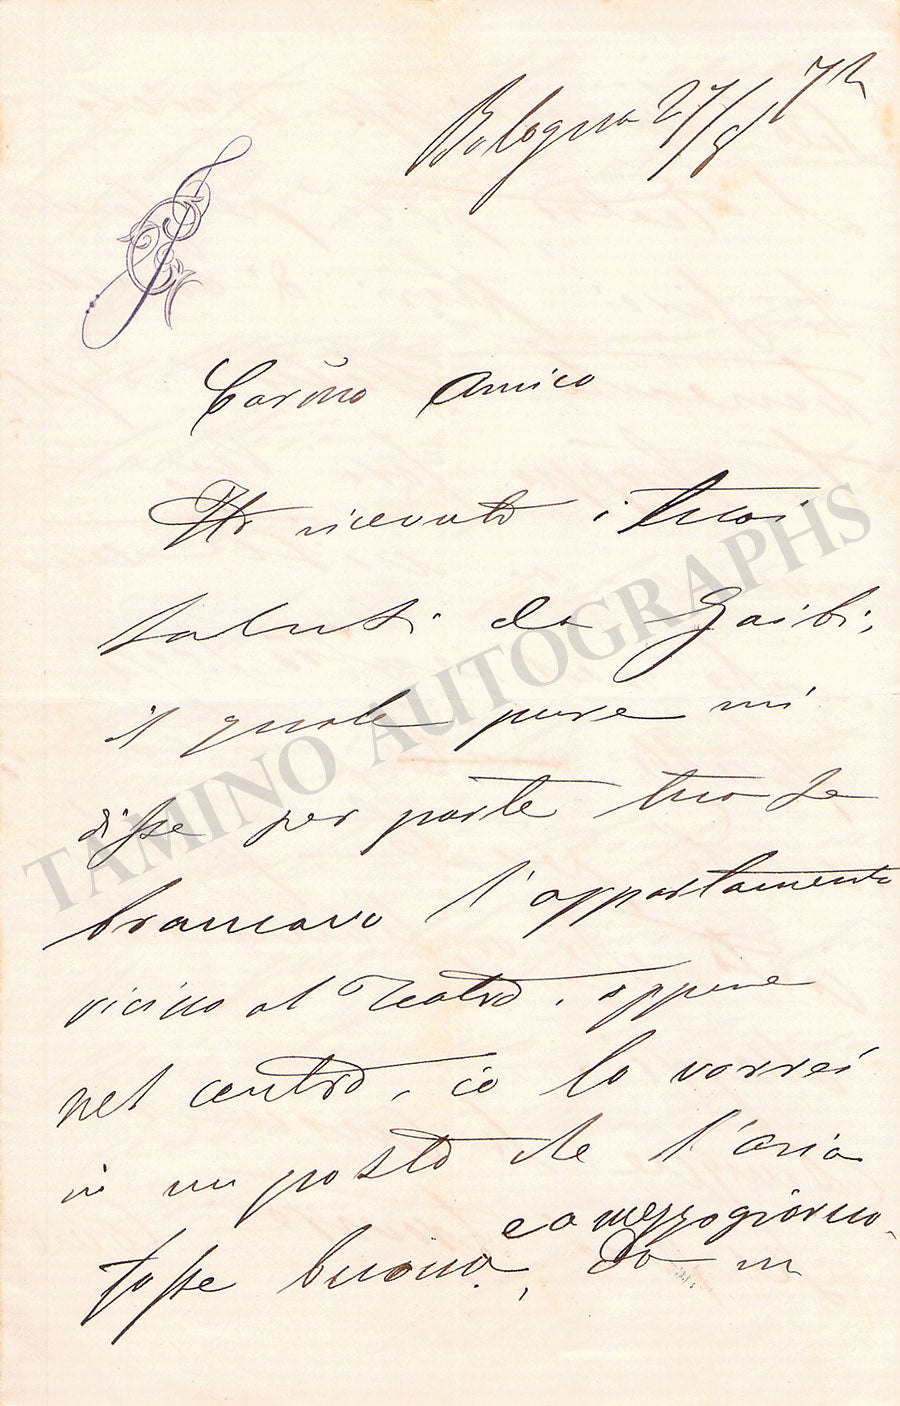 Bologna 27/8/72
Carimo Amico
Ho ricevuto i tuoi
saluti da Gaibi,
il quale pure mi
disse per parte tua se
bramavo l'appartamento
vicino al Teatro, oppure
nel centro, io lo vorrei
in un posto che l'aria
e a mezzogiorno.
fosse buona, Da un
TAMINO AUTOGRAPHS